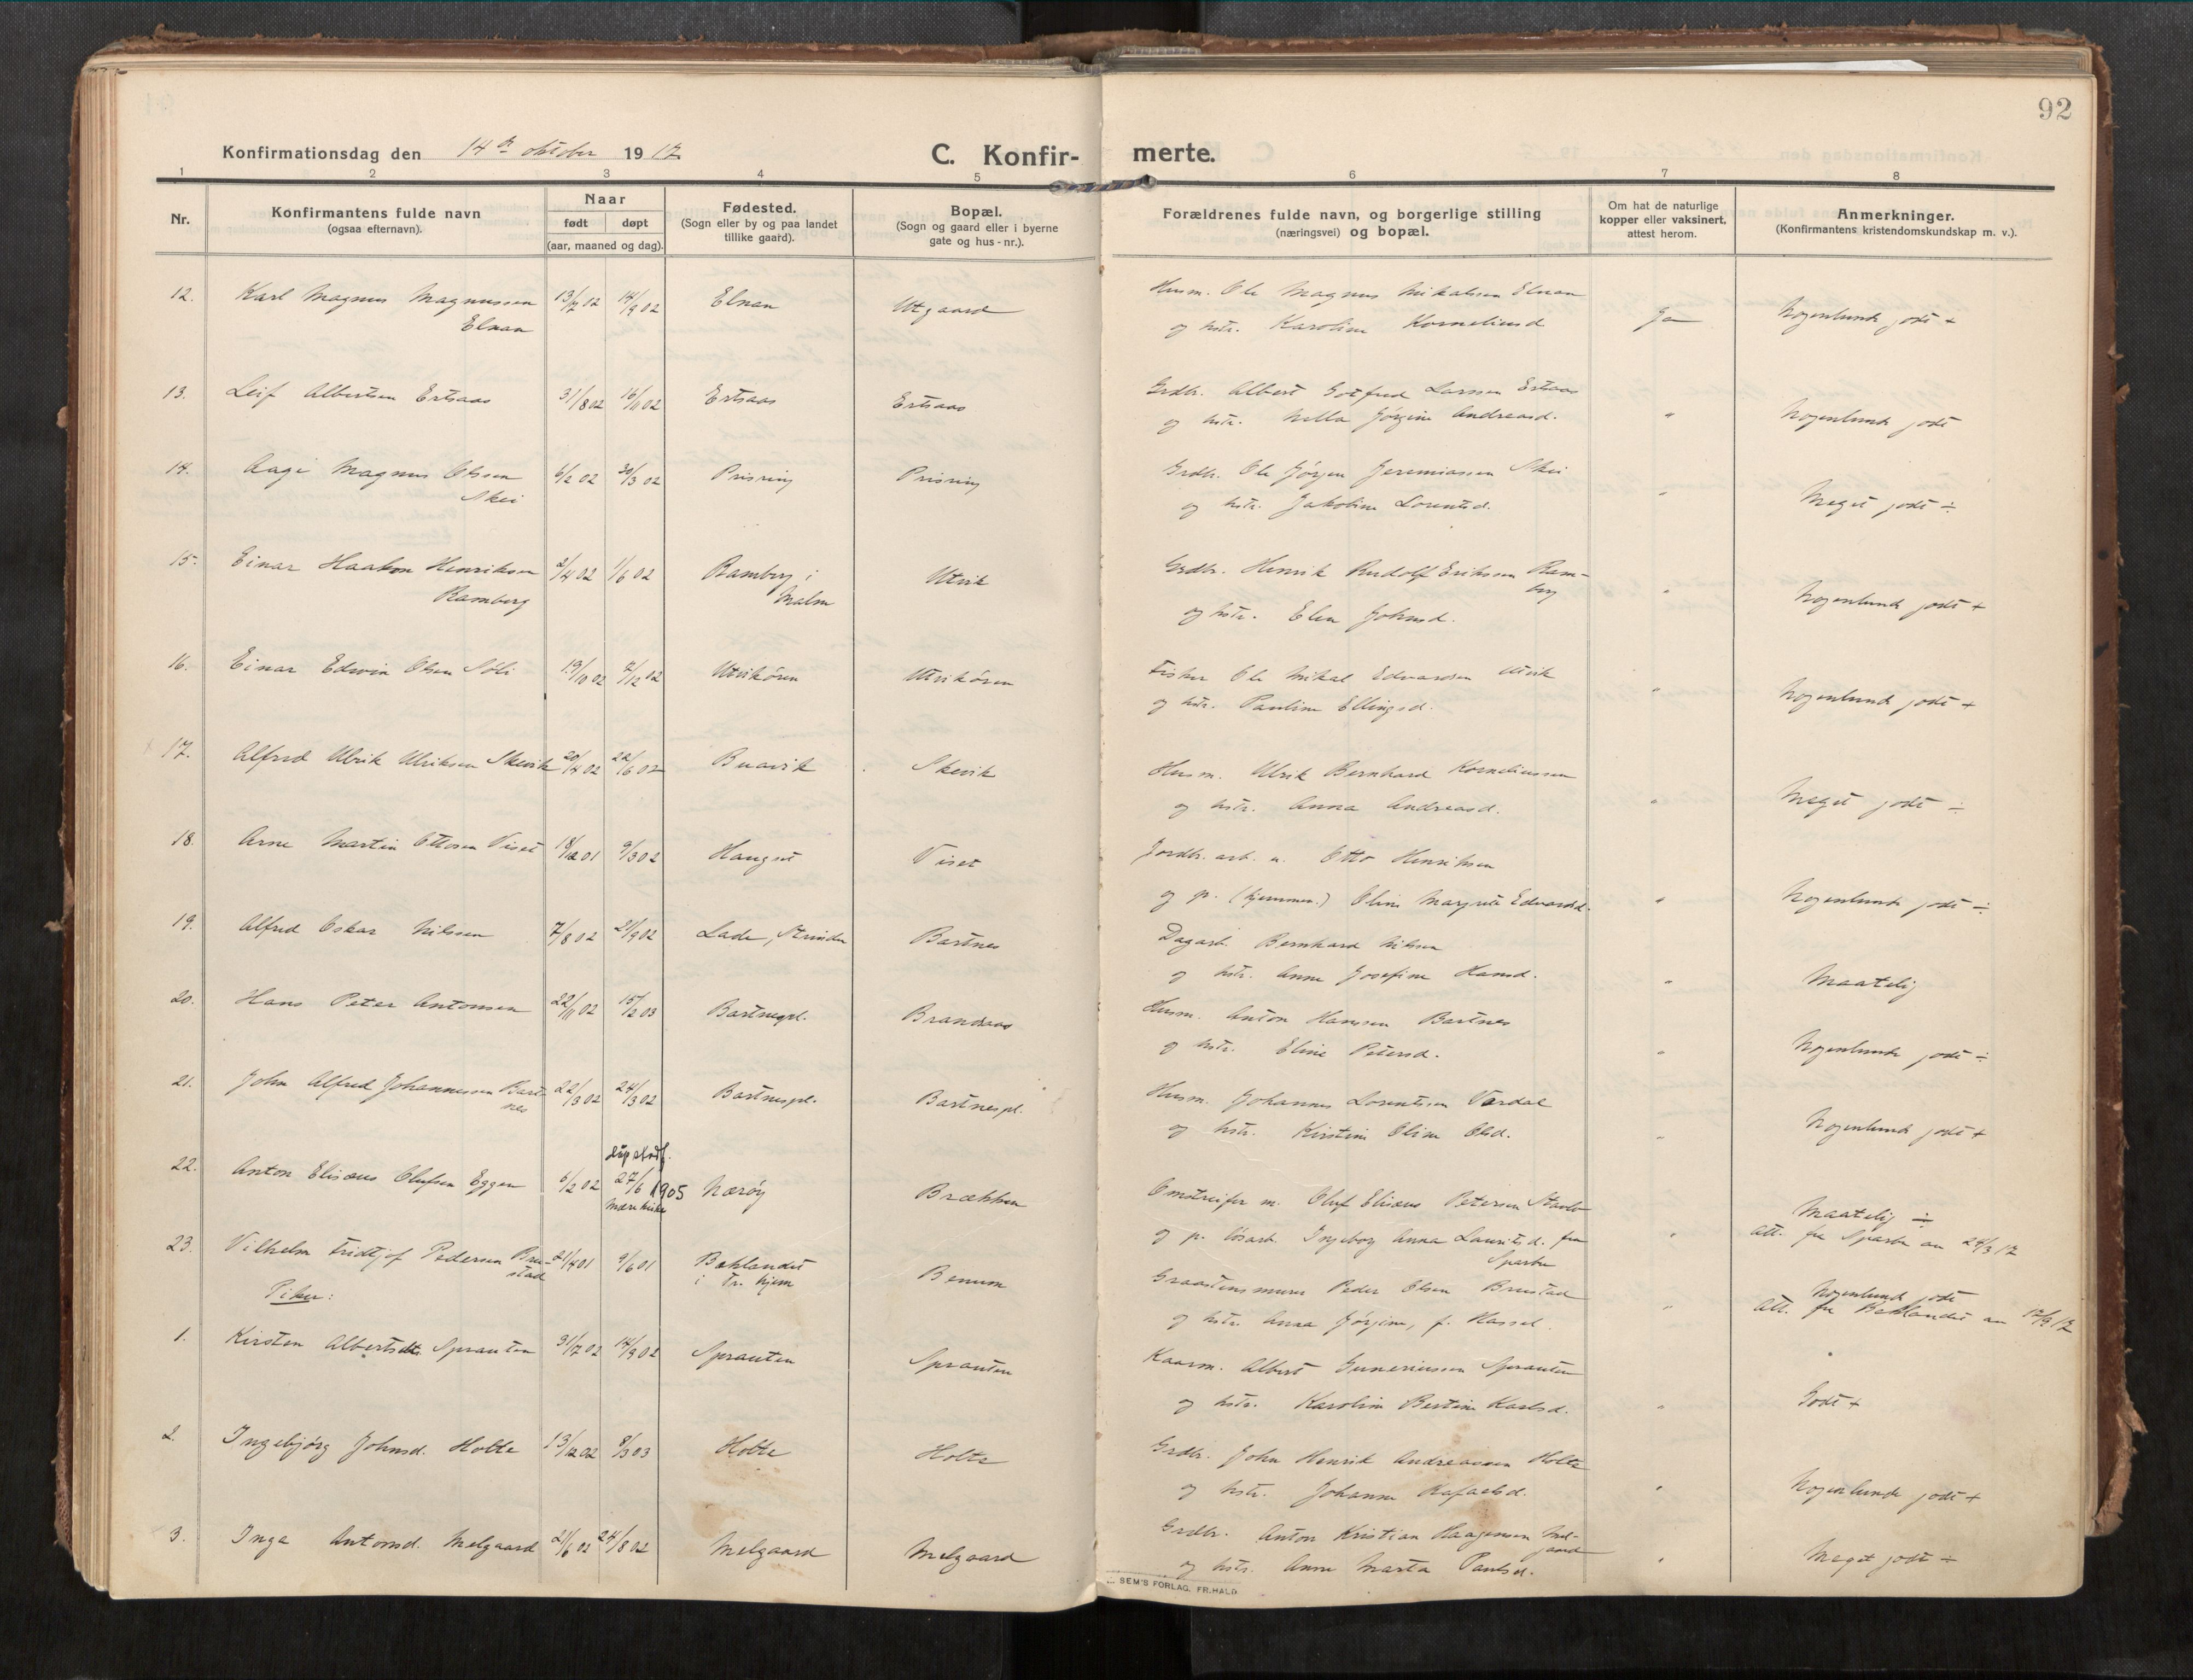 92
Konfirmationsdag den 14de oktober 1917.
C. Konfirmerte.
1 2 3 4 5 6 7 8
Nr.
Konfirmantens fulde navn
(ogsaa efternavn).
Naar
født døpt
(aar, maaned og dag).
Fødested.
(Sogn eller by og paa landet
tillike gaard).
Bopæl.
(Sogn og gaard eller i byerne
gate og hus-nr.).
Forældrenes fulde navn, og borgerlige stilling
(næringsvei) og bopæl.
Om hat de naturlige
kopper eller vaksinert,
attest herom.
Anmerkninger.
(Konfirmantens kristendomskundskap m. v.).
12. Karl Magnus Magnussen 13/7 02 14/9 02 Elnan Utgaard Husm. Ole Magnus Mikalsen Elnan
Elnan og hstr. Karoline Korneliusd. Ja Nogenlunde godt +
13. Leif Albertsen Ertsaas 31/8 02 16/11 02 Ertsaas Ertsaas Grdbr. Albert Gotfred Larssen Ertsaas
og hstr. Nella Jørgine Andreasd. " Nogenlunde godt
14. Aage Magnus Olssen 6/2 02 30/3 02 Prisring Prisring Grdbr. Ole Jørgen Jeremiassen Skei
Skei og hstr. Jakobine Lorentsd. " Meget godt ÷
15. Einar Haakon Henriksen 2/4 02 1/6 02 Ramberg i Utvik Grdbr. Henrik Rudolf Eriksen Ram-
Ramberg Malm berg
og hstr. Elen Johnsd. " Nogenlunde godt +
16. Einar Edvin Olsen Søli 19/10 02 7/12 02 Utvikøren Utvikøren Fisker Ole Mikal Edvardsen Utvik
og hstr. Pauline Ellingsd. " Nogenlunde godt +
17. Alfred Ulrik Ulriksen Skevik 20/4 02 22/6 02 Buavik Skevik Husm. Ulrik Bernhard Korneliussen
og hstr. Anna Andreasd. " Meget godt ÷
18. Arne Martin Ottosen Viset 18/12 01 9/3 02 Haugset Viset Jordbr. arb. u. Otto Henriksen
og p. (hjemmev.) Oline Margrete Edvardsd. " Nogenlunde godt ÷
19. Alfred Oskar Nilssen 7/8 02 21/9 02 Lade, Strinden Bartnes Dagarb. Bernhard Nilsen
og hstr. Anne Josefine Hansd. " Maatelig
20. Hans Peter Antonsen 22/11 02 15/2 03 Bartnespl. Brandaas Husm. Anton Hanssen Bartnes
og hstr. Eline Petersd. " Nogenlunde godt ÷
21. John Alfred Johannessen Bart- 22/3 02 24/3 02 Bartnespl. Bartnespl. Husm. Johannes Lorentsen Vardal
nes og hstr. Kirstine Oline Olsd. " Nogenlunde godt +
dåp stadf.
22. Anton Elisæus Olufsen Eggen 6/2 02 27/6 1905 Nærøy Brækken Omstreifer m. Oluf Elisæus Petersen
Mære kirke Maatelig ÷
og p. løsarb. Ingeborg Anna Lauritsd. fra " att. fra Sparbu av 24/3 17
Sparbu
23. Vilhelm Fridtjof Pedersen Bru- 21/4 01 9/6 01 Baklandet Benum Graastensmurer Peder Olsen Brustad
stad i Tr.hjem Nogenlunde godt
og hstr. Anna Jørgine, f. Hassel. " att. fra Baklandet av 17/9 17
Piker:
1. Kirsten Albertsdtr. Sprauten 31/7 02 14/9 02 Sprauten Sprauten Kaarm. Albert Guneriussen Sprauten
og hstr. Karoline Bertine Karlsd. " Godt +
2. Ingebjørg Johnsd. Holte 13/12 02 8/3 03 Holte Holte Grdbr. John Henrik Andreassen Holte
og hstr. Johanna Rafaelsd. " Nogenlunde godt +
3. Inga Antonsd. Melgaard 21/6 02 24/8 02 Melgaard Melgaard Grdbr. Anton Kristian Haagensen Mel-
gaard
og hstr. Anne Marta Paulsd. " Meget godt ÷
SEM'S FORLAG, FR.HALD